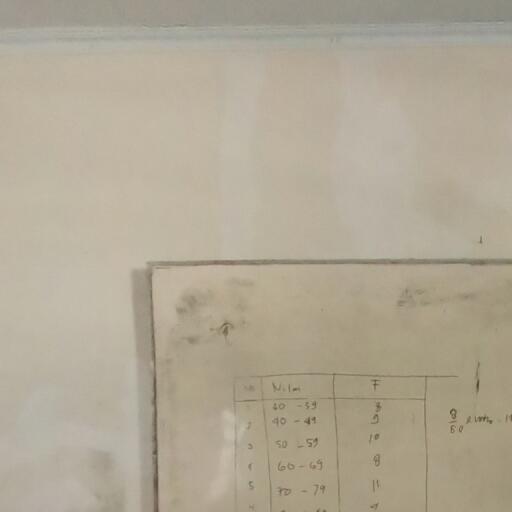 No Nilai F
1 30 - 39 8
2 40 - 49 9
3 50 - 59 10
4 60 - 69 8
5 70 - 79 11
8/50